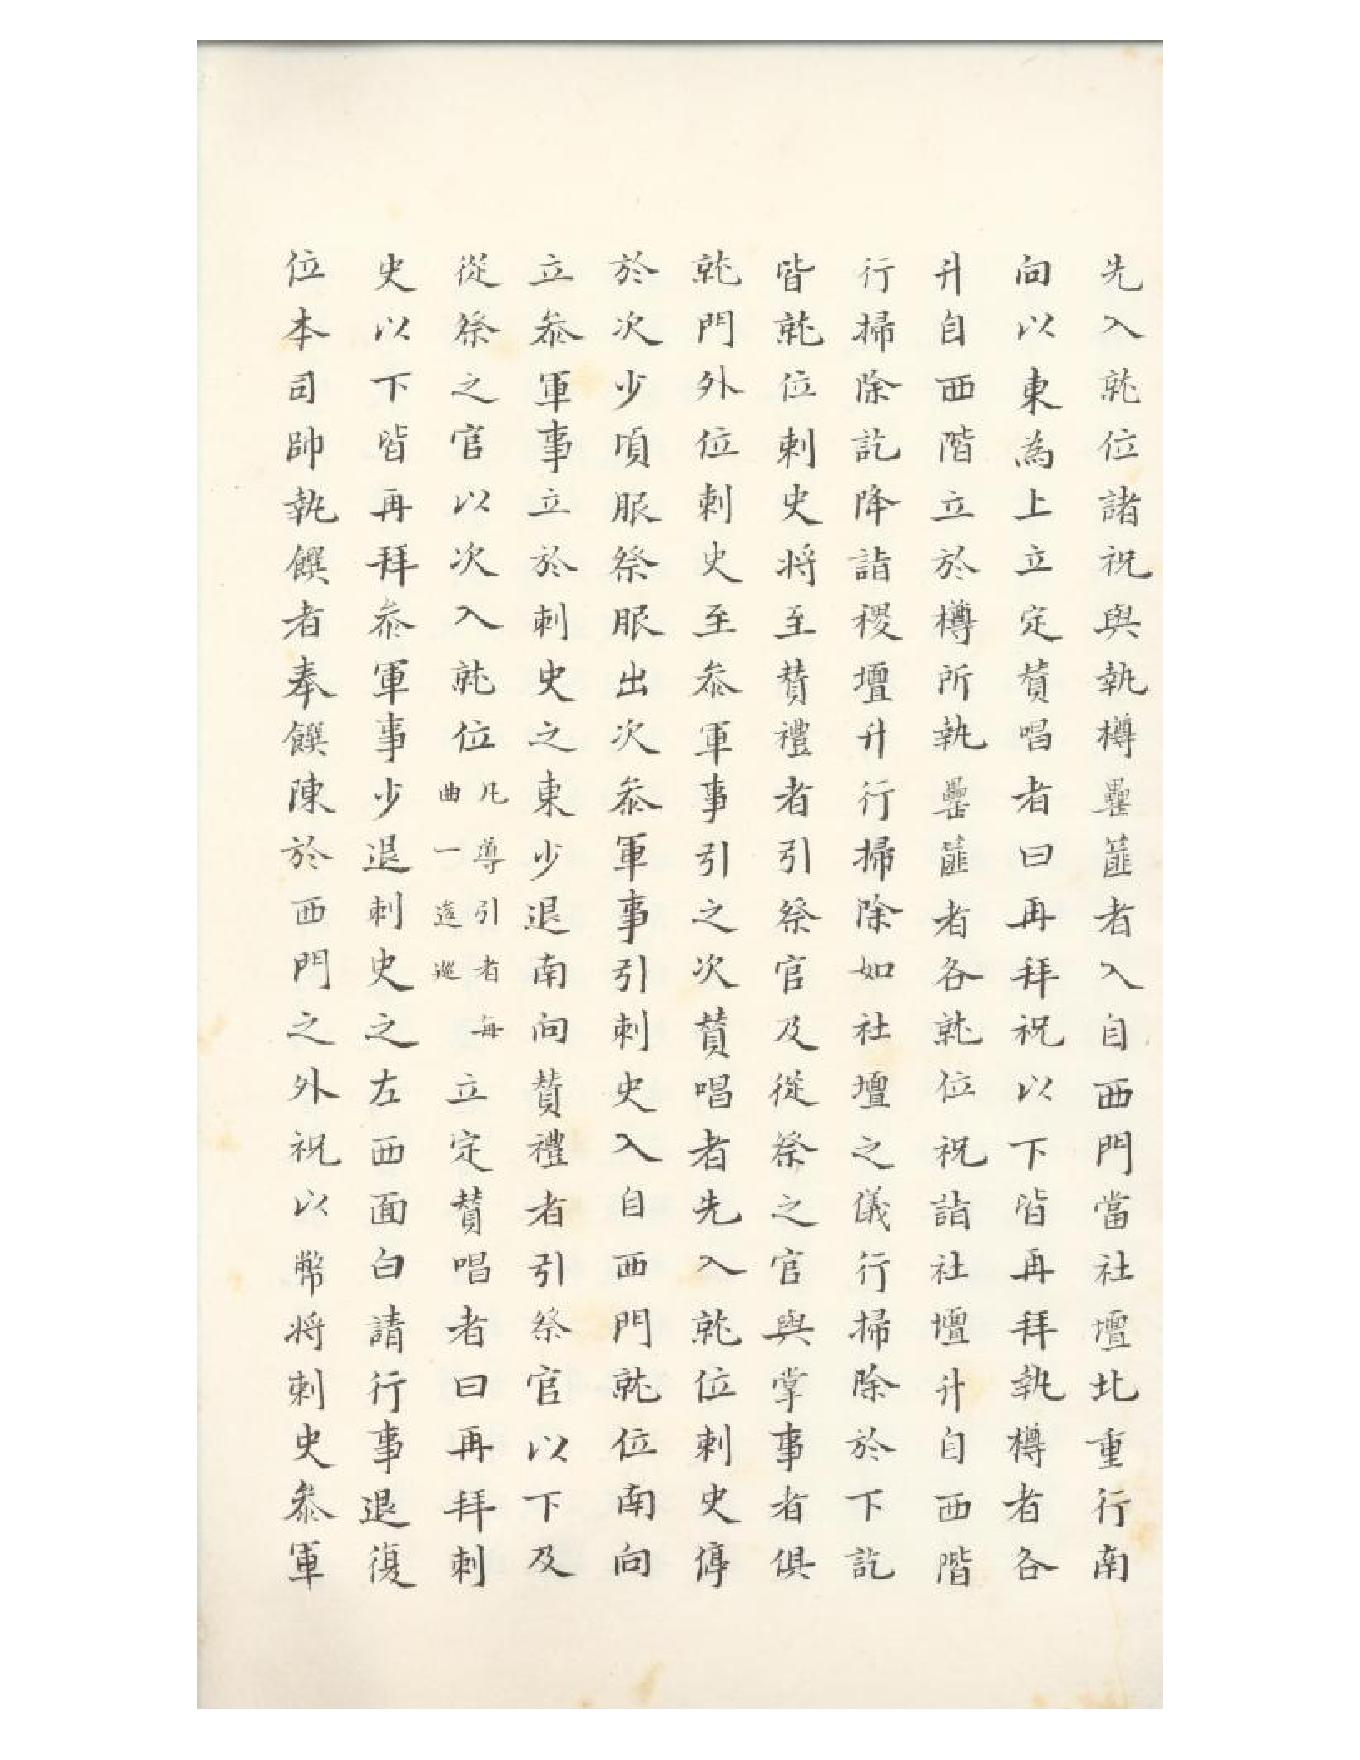 先入就位諸祝與執樽罍篚者入自西門當社壇北重行南
向以東為上立定賛唱者曰再拜祝以下皆再拜執樽者各
升自西階立於樽所執罍篚者各就位祝詣社壇升自西階
行掃除訖降詣稷壇升行掃除如社壇之儀行掃除於下訖
皆就位刺史将至賛禮者引祭官及從祭之官與掌事者俱
就門外位刺史至叅軍事引之次賛唱者先入就位刺史停
於次少頃服祭服出次叅軍事引刺史入自西門就位南向
立叅軍事立於刺史之東少退南向賛禮者引祭官以下及
從祭之官以次入就位凡導引者每曲一逡巡立定賛唱者曰再拜刺
史以下皆再拜叅軍事少退刺史之左西面白請行事退復
位本司帥執饌者奉饌陳於西門之外祝以幣将刺史叅軍